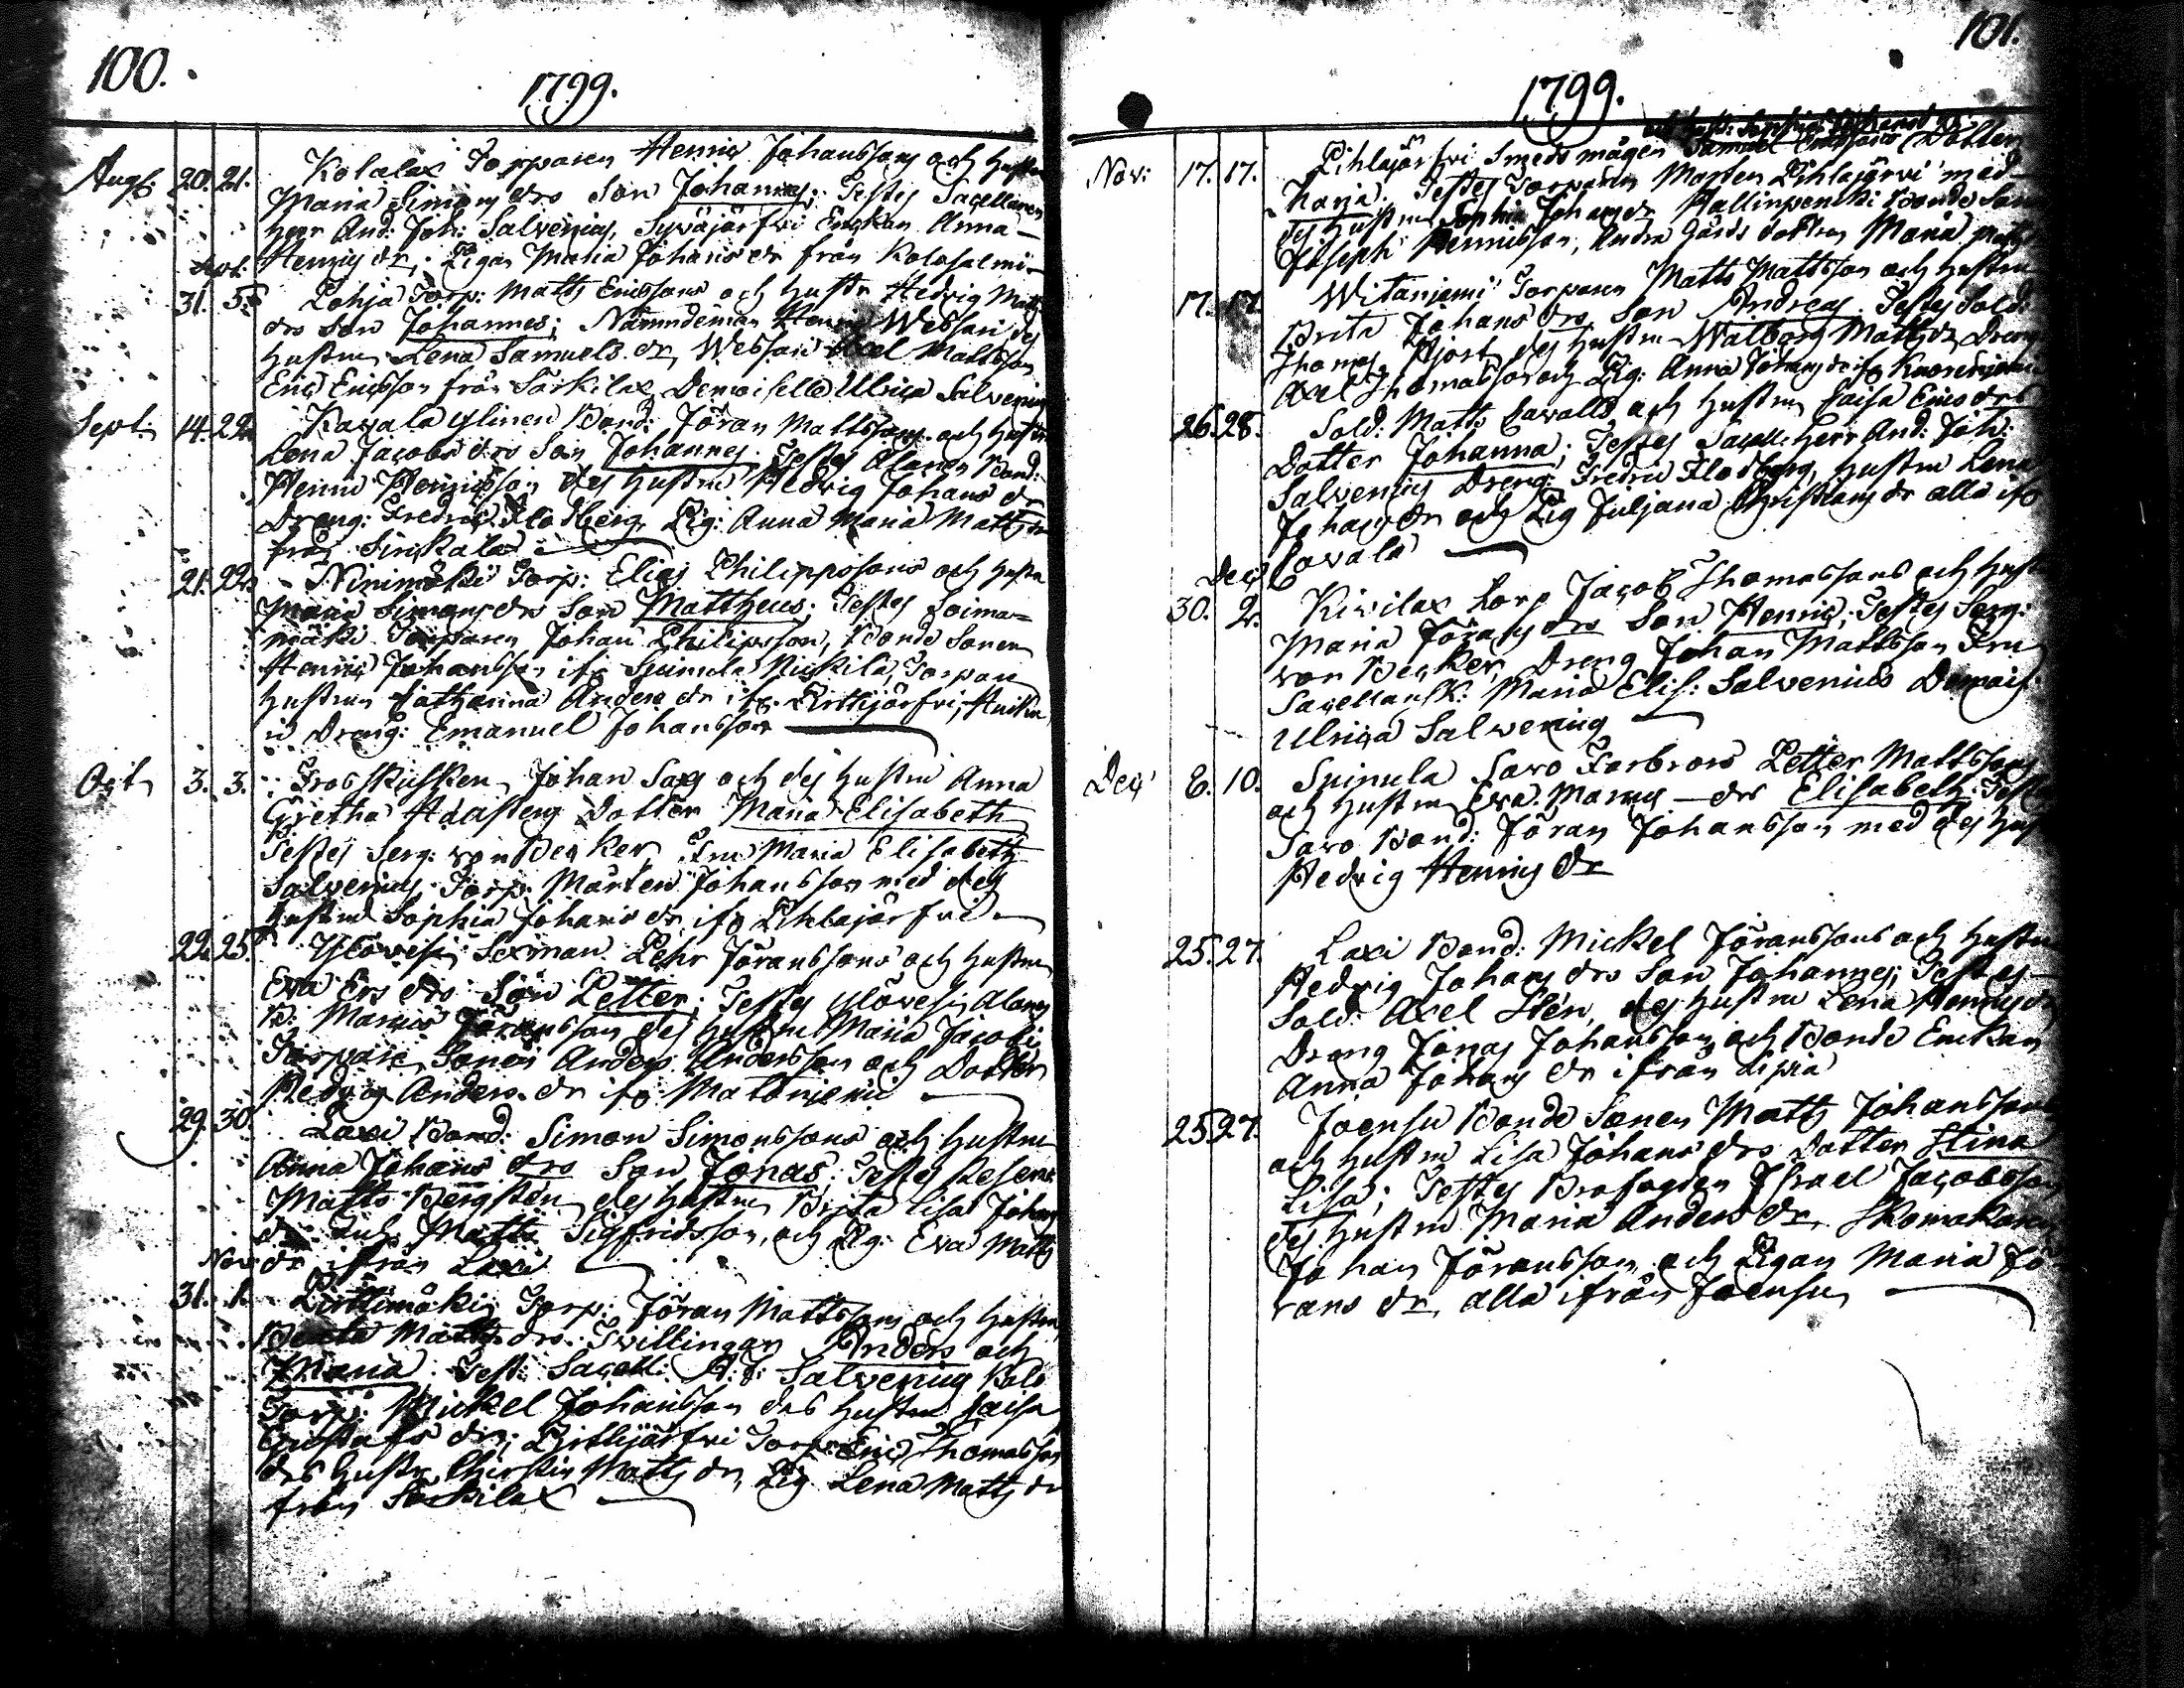 100.
1799.
Aug: 20. 21. Kolalax Torparen Henric Johanssons och hustru
Maria Simons drs Son Johannes; Testes Sacellanen
Herr And: Joh: Salvenius, Syväjärfvi Enckan Anna
Sept: Henrics dr, Pigan Maria Johans dr från Kolasalmi
31. 5. Lohja Torp: Matts Ericssons och hustr Hedvig Matts
drs Son Johannes; Nämndeman Henric Wessari des
hustru Lena Samuels dr, Wessari Axel Mattsson
Eric Ericsson från Särkilax Demoiselle Ulrica Salvenius
Sept: 14. 22. Kargala Ylinen Bond: Jöran Mattssons och hustru
Lena Jacobs drs Son Johannes. Testes Alanen Bond:
Henric Henricsson des hustru Hedvig Johans dr
Dreng: Fredric Flodberg, Pig: Anna Maria Matts dr
från Sirickala
21. 22. Ninimäki Torp: Elias Philippssons och hustru
Maria Simons drs Son Mattheus; Testes Loima-
mäki Torparen Johan Philipsson, Bonde Sonen
Henric Johansson ifr Spinula Nickilä, Torpare
hustrun Catharina Anders dr ifr Pirttijärfvi,
Dreng: Emanuel Johansson
Oct 3. 3. Trosskusken Johan Sax och des hustru Anna
Gretha Haasteng Dotter Maria Elisabeth
Testes Serg: von Becker, Fru Maria Elisabeth
Salvenius, Torp: Mårten Johansson med des
hustru Sophia Johans dr ifr Pihlajärfvi
22. 25. Ylövesi Sexman Pehr Jöranssons och hustru
Eva Ers drs Son Petter; Testes Ylövesi Alanen
B: Marcus Jöransson des hustru Maria Jacobs
Torpare Sonen Anders Andersson och Dotter
Hedvig Anders dr ifr Matoniemi
29. 30. Laxi Bond: Simon Simonssons och hustru
Anna Johans drs Son Jonas; Testes Reserv
Matts Bergsten des hustru Brita Lisa Johans
dr Matts Sigfridsson, och Pig: Eva Matts
Nov: dr ifrån Laxi
31. 1. Pirttimäki Torp: Jöran Mattssons och hustru
Beata Matts drs Tvillingar Anders och
Maria; Test: Sacell: A: J: Salvenius
Torp: Mickel Johansson des hustru Caisa
Gustafs dr; Pirttijärfvi Torp: Eric Thomasson
des hustru Christin Matts dr, Pig. Lena Matts dr
från Särkilax
101.
1799.
Nov: 17. 17. Pihlajärfvi Smeds mågen Samuel Dotter
Karja. Testes Torparen Morten Pihlajärvi med
des hustru Sophia Johans dr Hallinpenski Bonde Son
Joseph Henricsson, Andra Gårds dottren Maria Matts
17. 17. Witaniemi Torparen Matts Mattsson och hustru
Brita Johans drs Son Andreas. Testes Sold:
Thomas Hjort, des hustru Walborg Matts dr, Dreng
Axel Thomasson och Pig: Anna Johans dr ifr
26. 28. Sold: Matts Cavalls och hustru Caisa Erics drs
Dotter Johanna; Testes Sacell: Herr And: Joh:
Salvenius Dreng: Fredric Flodberg, hustru Lena
Johans dr och Pig Juljana Christians dr alla ifr
Dec: Cavala
30. 2. Kivilax Torp Jacob Thomassons och hustru
Maria Jörans drs Son Henric; Testes Serg:
von Becker, Dreng Johan Mattsson Fru
Sacellansk: Maria Elis: Salvenius Demois:
Ulrica Salvenius
Dec 6. 10. Spinula Saxo Farbrors Petter Mattssons
och hustru Eva Marcus drs Elisabeth; Testes
Saxo Bond: Jöran Johansson med des hustru
Hedvig Henrics dr
25. 27. Laxi Bond: Mickel Jöranssons och hustru
Hedvig Johans drs Son Johannes; Testes
Sold: Axel Sten, des hustru Lena Henrics dr,
Dreng Jonas Johansson och Bonde Enckan
Anna Johans dr ifrån Lipiä
25. 27. Joensu Bonde Sonen Matts Johanssons
och hustru Lisa Johans drs Dotter Stina
Lisa; Testes Brofogden Israel Jacobsson
des hustru Maria Anders dr, Skomakaren
Johan Jöransson och Pigan Maria Jö-
rans dr, alla ifrån Joensu